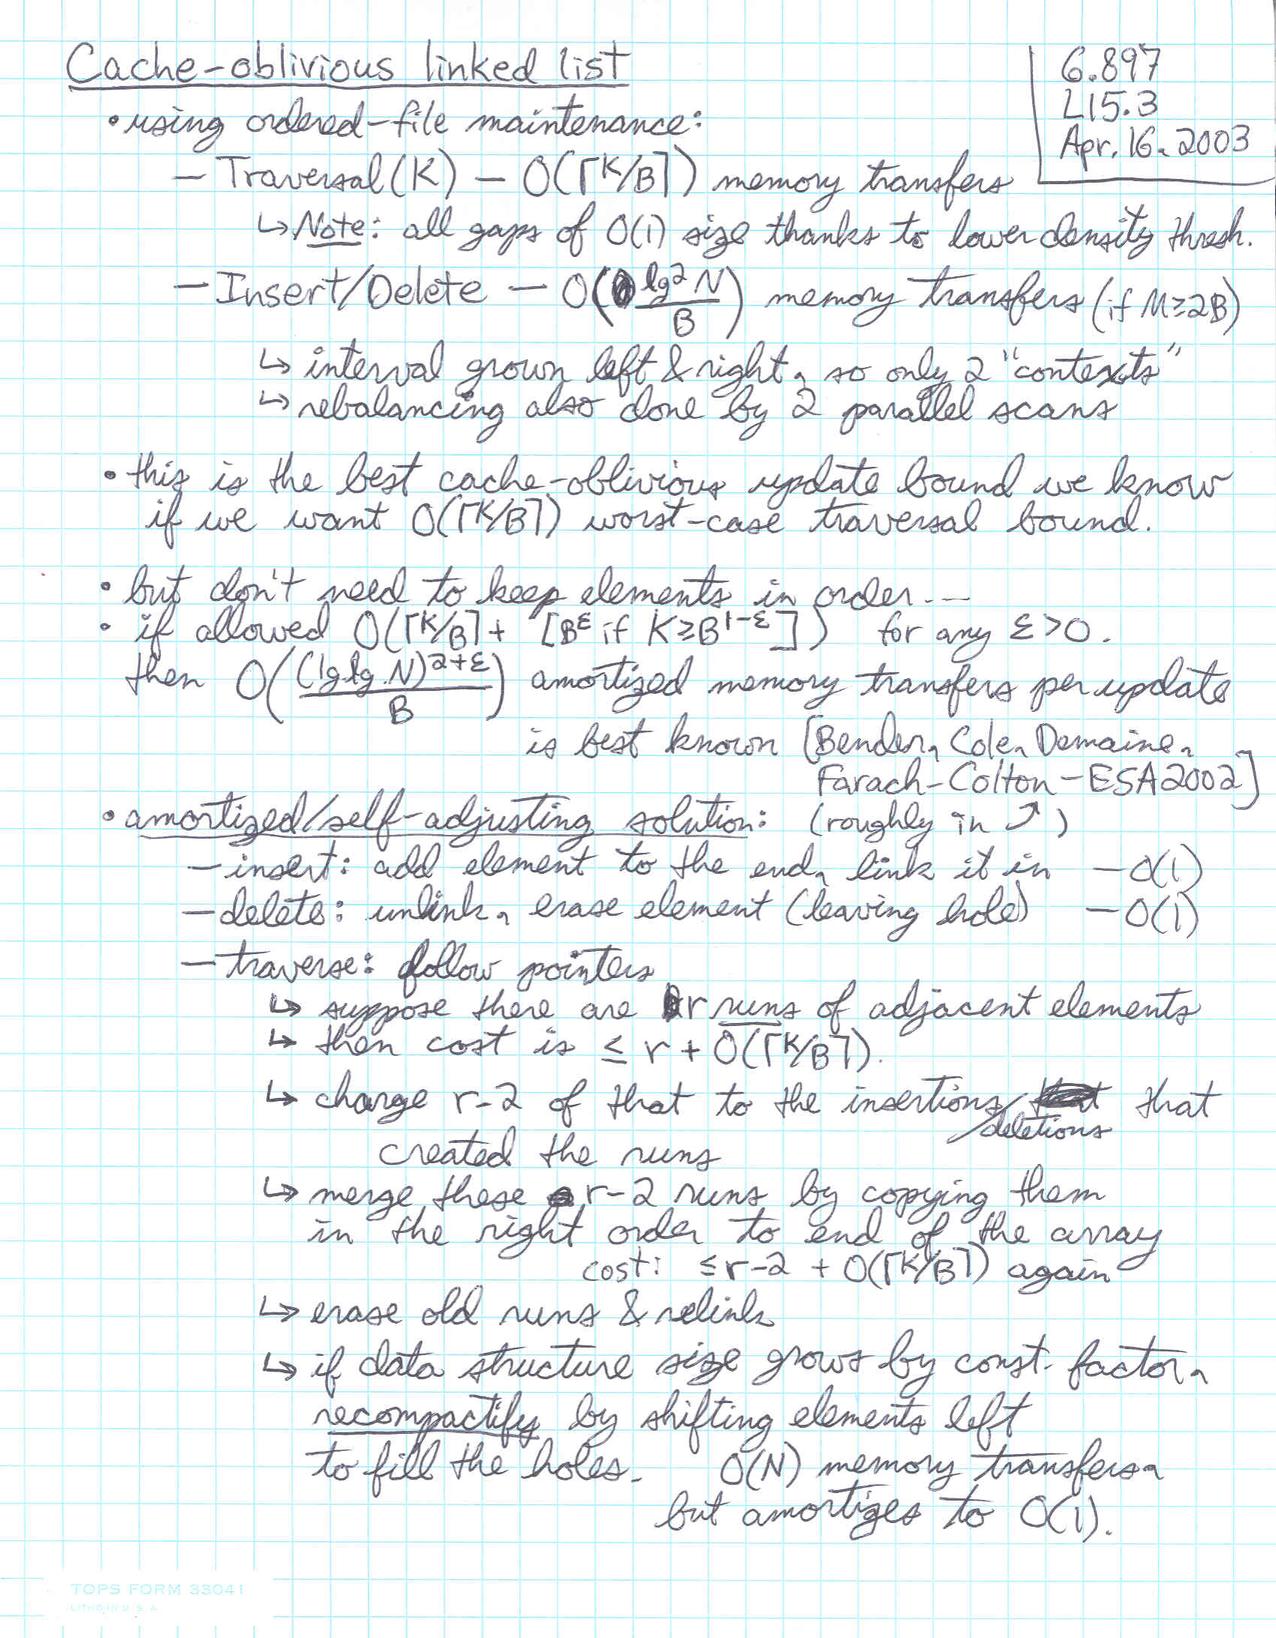 Cache-oblivious linked list
6.897
L15.3
Apr. 16, 2003
• using ordered-file maintenance:
— Traversal(K) — O(⌈K/B⌉) memory transfers
↳ Note: all gaps of O(1) size thanks to lower density thresh.
— Insert/Delete — O(lg² N / B) memory transfers (if M≥2B)
↳ interval grown left & right, so only 2 "contexts"
↳ rebalancing also done by 2 parallel scans
• this is the best cache-oblivious update bound we know
if we want O(⌈K/B⌉) worst-case traversal bound.
• but don't need to keep elements in order...
• if allowed O(⌈K/B⌉ + [B^ε if K≥B^1-ε]) for any ε>0,
then O((lg lg N)^2+ε / B) amortized memory transfers per update
is best known [Bender, Cole, Demaine,
Farach-Colton — ESA 2002]
• amortized/self-adjusting solution: (roughly in ↗)
— insert: add element to the end, link it in — O(1)
— delete: unlink, erase element (leaving hole) — O(1)
— traverse: follow pointers
↳ suppose there are r runs of adjacent elements
↳ then cost is ≤ r + O(⌈K/B⌉).
↳ charge r-2 of that to the insertions/deletions that
created the runs
↳ merge these r-2 runs by copying them
in the right order to end of the array
cost: ≤ r-2 + O(⌈K/B⌉) again
↳ erase old runs & relink
↳ if data structure size grows by const. factor,
recompactify by shifting elements left
to fill the holes. O(N) memory transfers,
but amortizes to O(1).
TOPS FORM 33041
LITHO IN U.S.A.